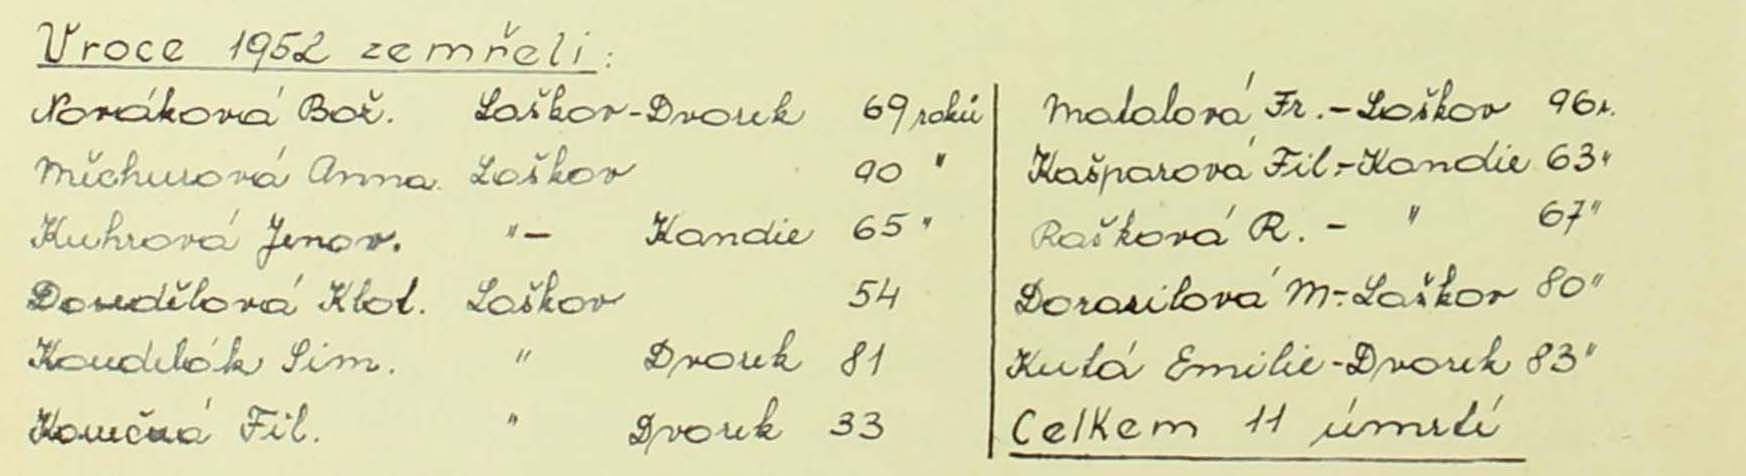 V roce 1952 zemřeli:
Nováková Bož. Laškov-Dvorek 69 roků
Měchurová Anna. Laškov 90 "
Kuhrová Jenov. "- Kandie 65 "
Dosedělová Klot. Laškov 54
Koudelák Sim. " Dvorek 81
Konečná Fil. " Dvorek 33
Matalová Fr.-Laškov 96 r.
Kašparová Fil.-Kandie 63 "
Rašková R. - " 67 "
Dorazilová M.-Laškov 80 "
Kutá Emilie-Dvorek 83 "
Celkem 11 úmrtí